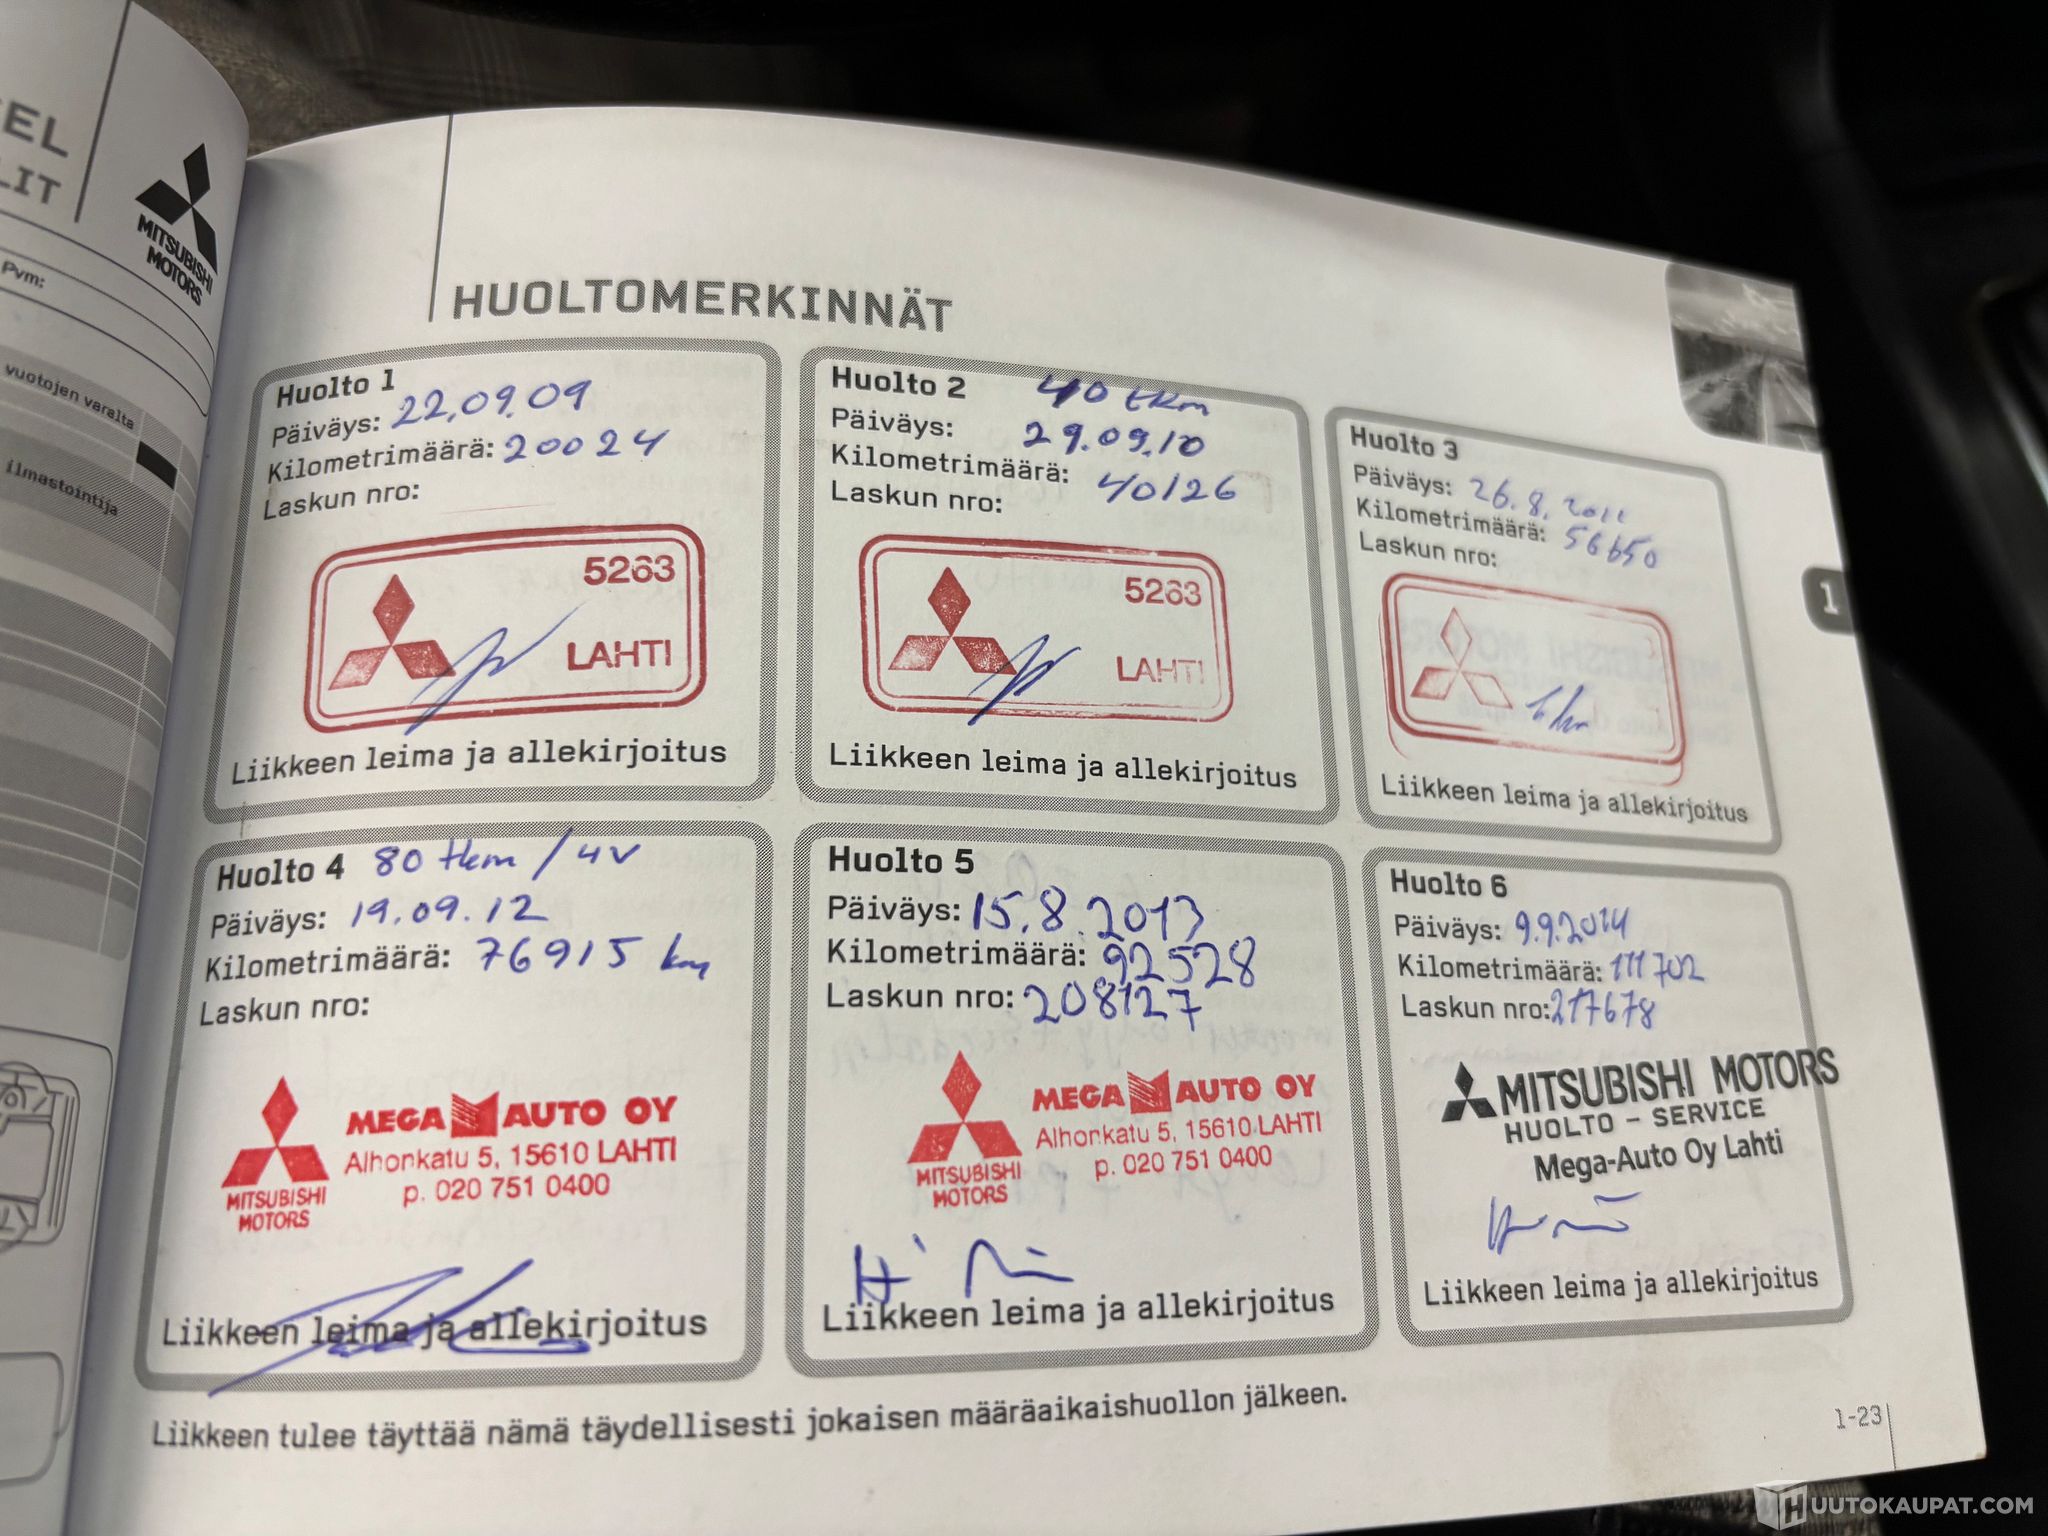 EL
LIT
MITSUBISHI
MOTORS
Pvm:
vuotojen varalta
ilmastointija
HUOLTOMERKINNÄT
Huolto 1
Päiväys: 22.09.09
Kilometrimäärä: 20024
Laskun nro:
5263
LAHTI
Liikkeen leima ja allekirjoitus
Huolto 2 40 tkm
Päiväys: 29.09.10
Kilometrimäärä: 40126
Laskun nro:
5263
LAHTI
Liikkeen leima ja allekirjoitus
Huolto 3
Päiväys: 26.8.2011
Kilometrimäärä: 56650
Laskun nro:
Liikkeen leima ja allekirjoitus
Huolto 4 80 tkm / 4V
Päiväys: 19.09.12
Kilometrimäärä: 76915 km
Laskun nro:
MEGA AUTO OY
Alhonkatu 5, 15610 LAHTI
p. 020 751 0400
MITSUBISHI
MOTORS
Liikkeen leima ja allekirjoitus
Huolto 5
Päiväys: 15.8.2013
Kilometrimäärä: 92528
Laskun nro: 208127
MEGA AUTO OY
Alhonkatu 5, 15610 LAHTI
p. 020 751 0400
MITSUBISHI
MOTORS
Liikkeen leima ja allekirjoitus
Huolto 6
Päiväys: 9.9.2014
Kilometrimäärä: 111702
Laskun nro: 217678
MITSUBISHI MOTORS
HUOLTO - SERVICE
Mega-Auto Oy Lahti
Liikkeen leima ja allekirjoitus
1
Liikkeen tulee täyttää nämä täydellisesti jokaisen määräaikaishuollon jälkeen.
1-23
HUUTOKAUPAT.COM